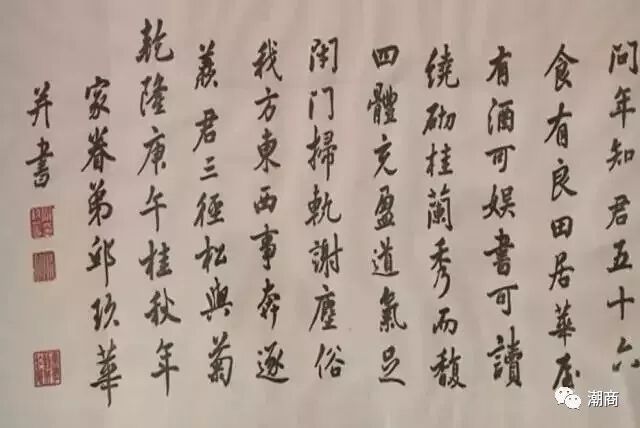 问年知君五十六
食有良田居華屋
有酒可娱書可讀
繞砌桂蘭秀而馥
四體充盈道氣足
闭门掃軌謝塵俗
我方東西事奔逐
羨君三徑松與菊
乾隆庚午桂秋年
家眷弟邱玖華
并書
潮商